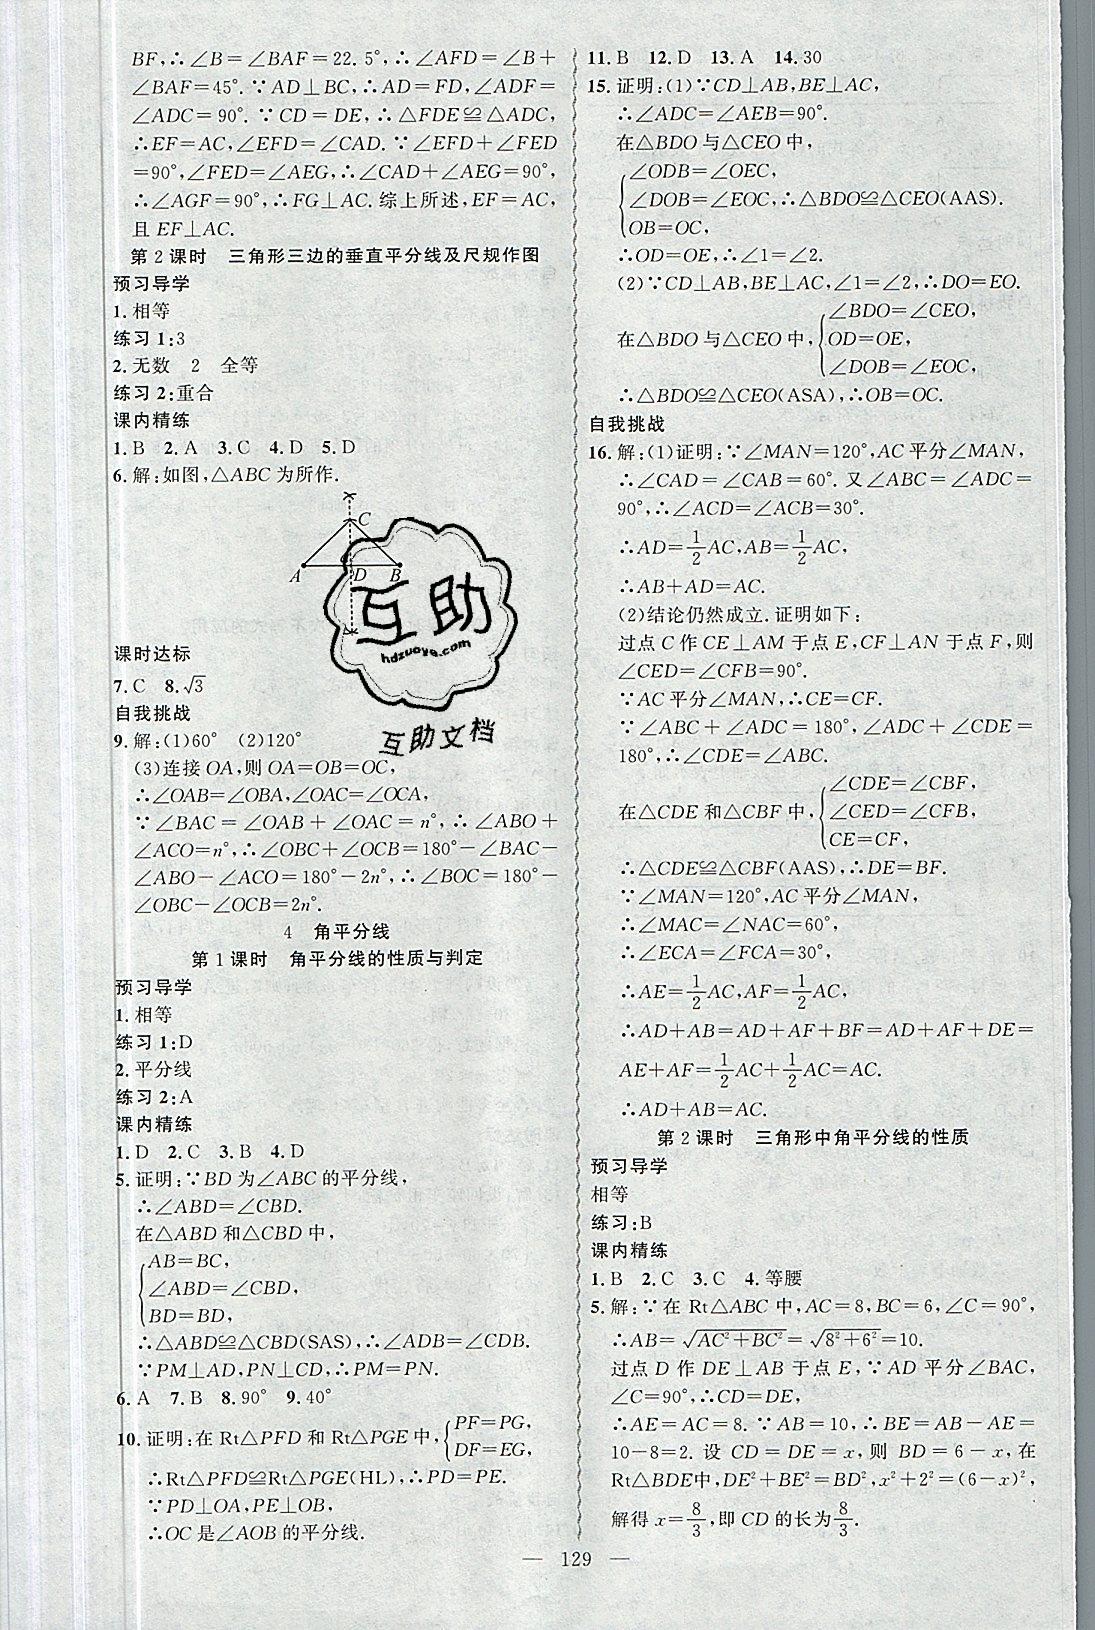 BF,∴∠B=∠BAF=22.5°,∴∠AFD=∠B+
∠BAF=45°.∵AD⊥BC,∴AD=FD,∠ADF=
∠ADC=90°.∵CD=DE,∴△FDE≌△ADC,
∴EF=AC,∠EFD=∠CAD.∵∠EFD+∠FED
=90°,∠FED=∠AEG,∴∠CAD+∠AEG=90°,
∴∠AGF=90°,∴FG⊥AC.综上所述,EF=AC,
且EF⊥AC.
第2课时 三角形三边的垂直平分线及尺规作图
预习导学
1.相等
练习1:3
2.无数 2 全等
练习2:重合
课内精练
1.B 2.A 3.C 4.D 5.D
6.解:如图,△ABC为所作.
C
A D B
互助
hdzuoye.com
互助文档
课时达标
7.C 8.√3
自我挑战
9.解:(1)60° (2)120°
(3)连接OA,则OA=OB=OC,
∴∠OAB=∠OBA,∠OAC=∠OCA,
∵∠BAC=∠OAB+∠OAC=n°,∴∠ABO+
∠ACO=n°,∴∠OBC+∠OCB=180°-∠BAC-
∠ABO-∠ACO=180°-2n°,∴∠BOC=180°-
∠OBC-∠OCB=2n°.
4 角平分线
第1课时 角平分线的性质与判定
预习导学
1.相等
练习1:D
2.平分线
练习2:A
课内精练
1.D 2.C 3.B 4.D
5.证明:∵BD为∠ABC的平分线,
∴∠ABD=∠CBD.
在△ABD和△CBD中,
AB=BC,
∠ABD=∠CBD,
BD=BD,
∴△ABD≌△CBD(SAS),∴∠ADB=∠CDB.
∵PM⊥AD,PN⊥CD,∴PM=PN.
6.A 7.B 8.90° 9.40°
10.证明:在Rt△PFD和Rt△PGE中,{PF=PG,
DF=EG,
∴Rt△PFD≌Rt△PGE(HL),∴PD=PE.
∵PD⊥OA,PE⊥OB,
∴OC是∠AOB的平分线.
11.B 12.D 13.A 14.30
15.证明:(1)∵CD⊥AB,BE⊥AC,
∴∠ADC=∠AEB=90°.
在△BDO与△CEO中,
∠ODB=∠OEC,
∠DOB=∠EOC,∴△BDO≌△CEO(AAS).
OB=OC,
∴OD=OE,∴∠1=∠2.
(2)∵CD⊥AB,BE⊥AC,∠1=∠2,∴DO=EO.
∠BDO=∠CEO,
在△BDO与△CEO中,{OD=OE,
∠DOB=∠EOC,
∴△BDO≌△CEO(ASA),∴OB=OC.
自我挑战
16.解:(1)证明:∵∠MAN=120°,AC平分∠MAN,
∴∠CAD=∠CAB=60°.又∠ABC=∠ADC=
90°,∴∠ACD=∠ACB=30°.
∴AD=1/2AC,AB=1/2AC,
∴AB+AD=AC.
(2)结论仍然成立.证明如下:
过点C作CE⊥AM于点E,CF⊥AN于点F,则
∠CED=∠CFB=90°.
∵AC平分∠MAN,∴CE=CF.
∵∠ABC+∠ADC=180°,∠ADC+∠CDE=
180°,∴∠CDE=∠ABC.
∠CDE=∠CBF,
在△CDE和△CBF中,{∠CED=∠CFB,
CE=CF,
∴△CDE≌△CBF(AAS),∴DE=BF.
∵∠MAN=120°,AC平分∠MAN,
∴∠MAC=∠NAC=60°,
∴∠ECA=∠FCA=30°,
∴AE=1/2AC,AF=1/2AC,
∴AD+AB=AD+AF+BF=AD+AF+DE=
AE+AF=1/2AC+1/2AC=AC.
∴AD+AB=AC.
第2课时 三角形中角平分线的性质
预习导学
相等
练习:B
课内精练
1.B 2.C 3.C 4.等腰
5.解:∵在Rt△ABC中,AC=8,BC=6,∠C=90°,
∴AB=√(AC²+BC²)=√(8²+6²)=10.
过点D作DE⊥AB于点E,∵AD平分∠BAC,
∠C=90°,∴CD=DE,
∴AE=AC=8.∵AB=10,∴BE=AB-AE=
10-8=2.设CD=DE=x,则BD=6-x,在
Rt△BDE中,DE²+BE²=BD²,x²+2²=(6-x)²,
解得x=8/3,即CD的长为8/3.
— 129 —